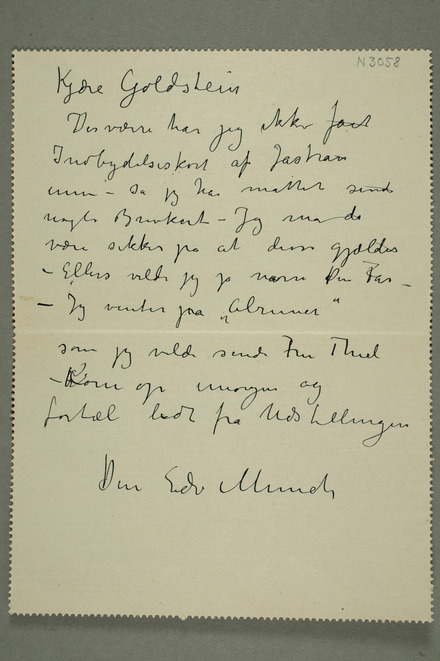 N3058
Kjære Goldstein
Desværre har jeg ikke faat
Indbydelseskort af Jastrau
unu – Så jeg har måttet sende
nogle Brevkort – Jeg må da
være sikker på at disse gjælder
– Ellers vilde jeg jo narre Din Far –
– Jeg venter paa „Alruner“
som jeg vilde sende Fru Thiel
– Kom op imorgen og
fortæl lidt fra Udstillingen
Din Edv Munch